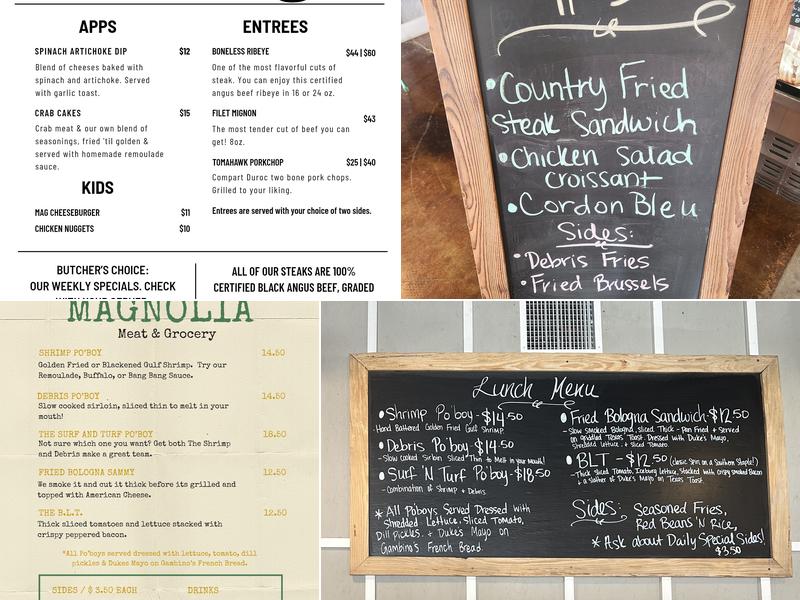 APPS
SPINACH ARTICHOKE DIP $12
Blend of cheeses baked with
spinach and artichoke. Served
with garlic toast.
CRAB CAKES $15
Crab meat & our own blend of
seasonings, fried 'til golden &
served with homemade remoulade
sauce.
KIDS
MAG CHEESEBURGER $11
CHICKEN NUGGETS $10
ENTREES
BONELESS RIBEYE $44 | $60
One of the most flavorful cuts of
steak. You can enjoy this certified
angus beef ribeye in 16 or 24 oz.
FILET MIGNON $43
The most tender cut of beef you can
get! 8oz.
TOMAHAWK PORKCHOP $25 | $40
Compart Duroc two bone pork chops.
Grilled to your liking.
Entrees are served with your choice of two sides.
BUTCHER'S CHOICE:
OUR WEEKLY SPECIALS. CHECK
WITH YOUR SERVER
ALL OF OUR STEAKS ARE 100%
CERTIFIED BLACK ANGUS BEEF, GRADED
• Country Fried
Steak Sandwich
• Chicken Salad
croissant
• Cordon Bleu
Sides:
• Debris Fries
• Fried Brussels
MAGNOLIA
Meat & Grocery
SHRIMP PO'BOY 14.50
Golden Fried or Blackened Gulf Shrimp. Try our
Remoulade, Buffalo, or Bang Bang Sauce.
DEBRIS PO'BOY 14.50
Slow cooked sirloin, sliced thin to melt in your
mouth!
THE SURF AND TURF PO'BOY 18.50
Not sure which one you want? Get both The Shrimp
and Debris make a great team.
FRIED BOLOGNA SAMMY 12.50
We smoke it and cut it thick before its grilled and
topped with American Cheese.
THE B.L.T. 12.50
Thick sliced tomatoes and lettuce stacked with
crispy peppered bacon.
*All Po'boys served dressed with lettuce, tomato, dill
pickles & Dukes Mayo on Gambino's French Bread.
SIDES / $ 3.50 EACH DRINKS
Lunch Menu
• Shrimp Po'boy - $14.50
- Hand Battered Golden Fried Gulf Shrimp
• Debris Po'boy - $14.50
- Slow cooked Sirloin Sliced Thin to Melt in your mouth!
• Surf 'N Turf Po'boy - $18.50
- Combination of Shrimp + Debris
* All Poboys Served Dressed with
Shredded Lettuce, Sliced Tomato,
Dill Pickles + Dukes Mayo on
Gambino's French Bread.
• Fried Bologna Sandwich - $12.50
- Slow Smoked Bologna, sliced Thick - Pan Fried + Served
on griddled Texas Toast. Dressed with Duke's Mayo,
Shredded lettuce, + Sliced Tomato.
• BLT - $12.50 (classic spin on a Southern Staple!)
- Thick sliced Tomato, Iceburg lettuce, Stacked with crispy smoked Bacon
+ a slather of Dukes Mayo on Texas Toast.
Sides: Seasoned Fries,
Red Beans 'N Rice,
* Ask about Daily Special Sides!
$3.50